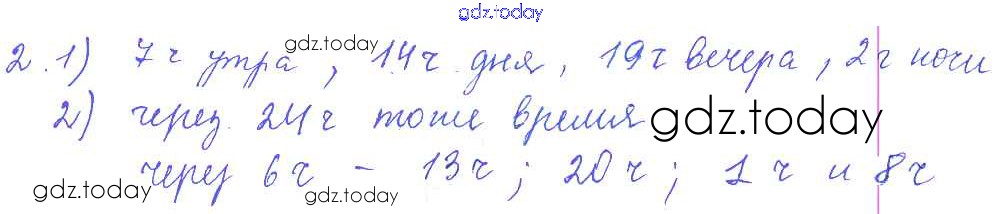 gdz.today
2. 1) 7 ч утра, 14 ч дня, 19 ч вечера, 2 ч ночи
gdz.today
2) через 24 ч тоже время
gdz.today
через 6 ч - 13 ч; 20 ч; 1 ч и 8 ч
gdz.today gdz.today